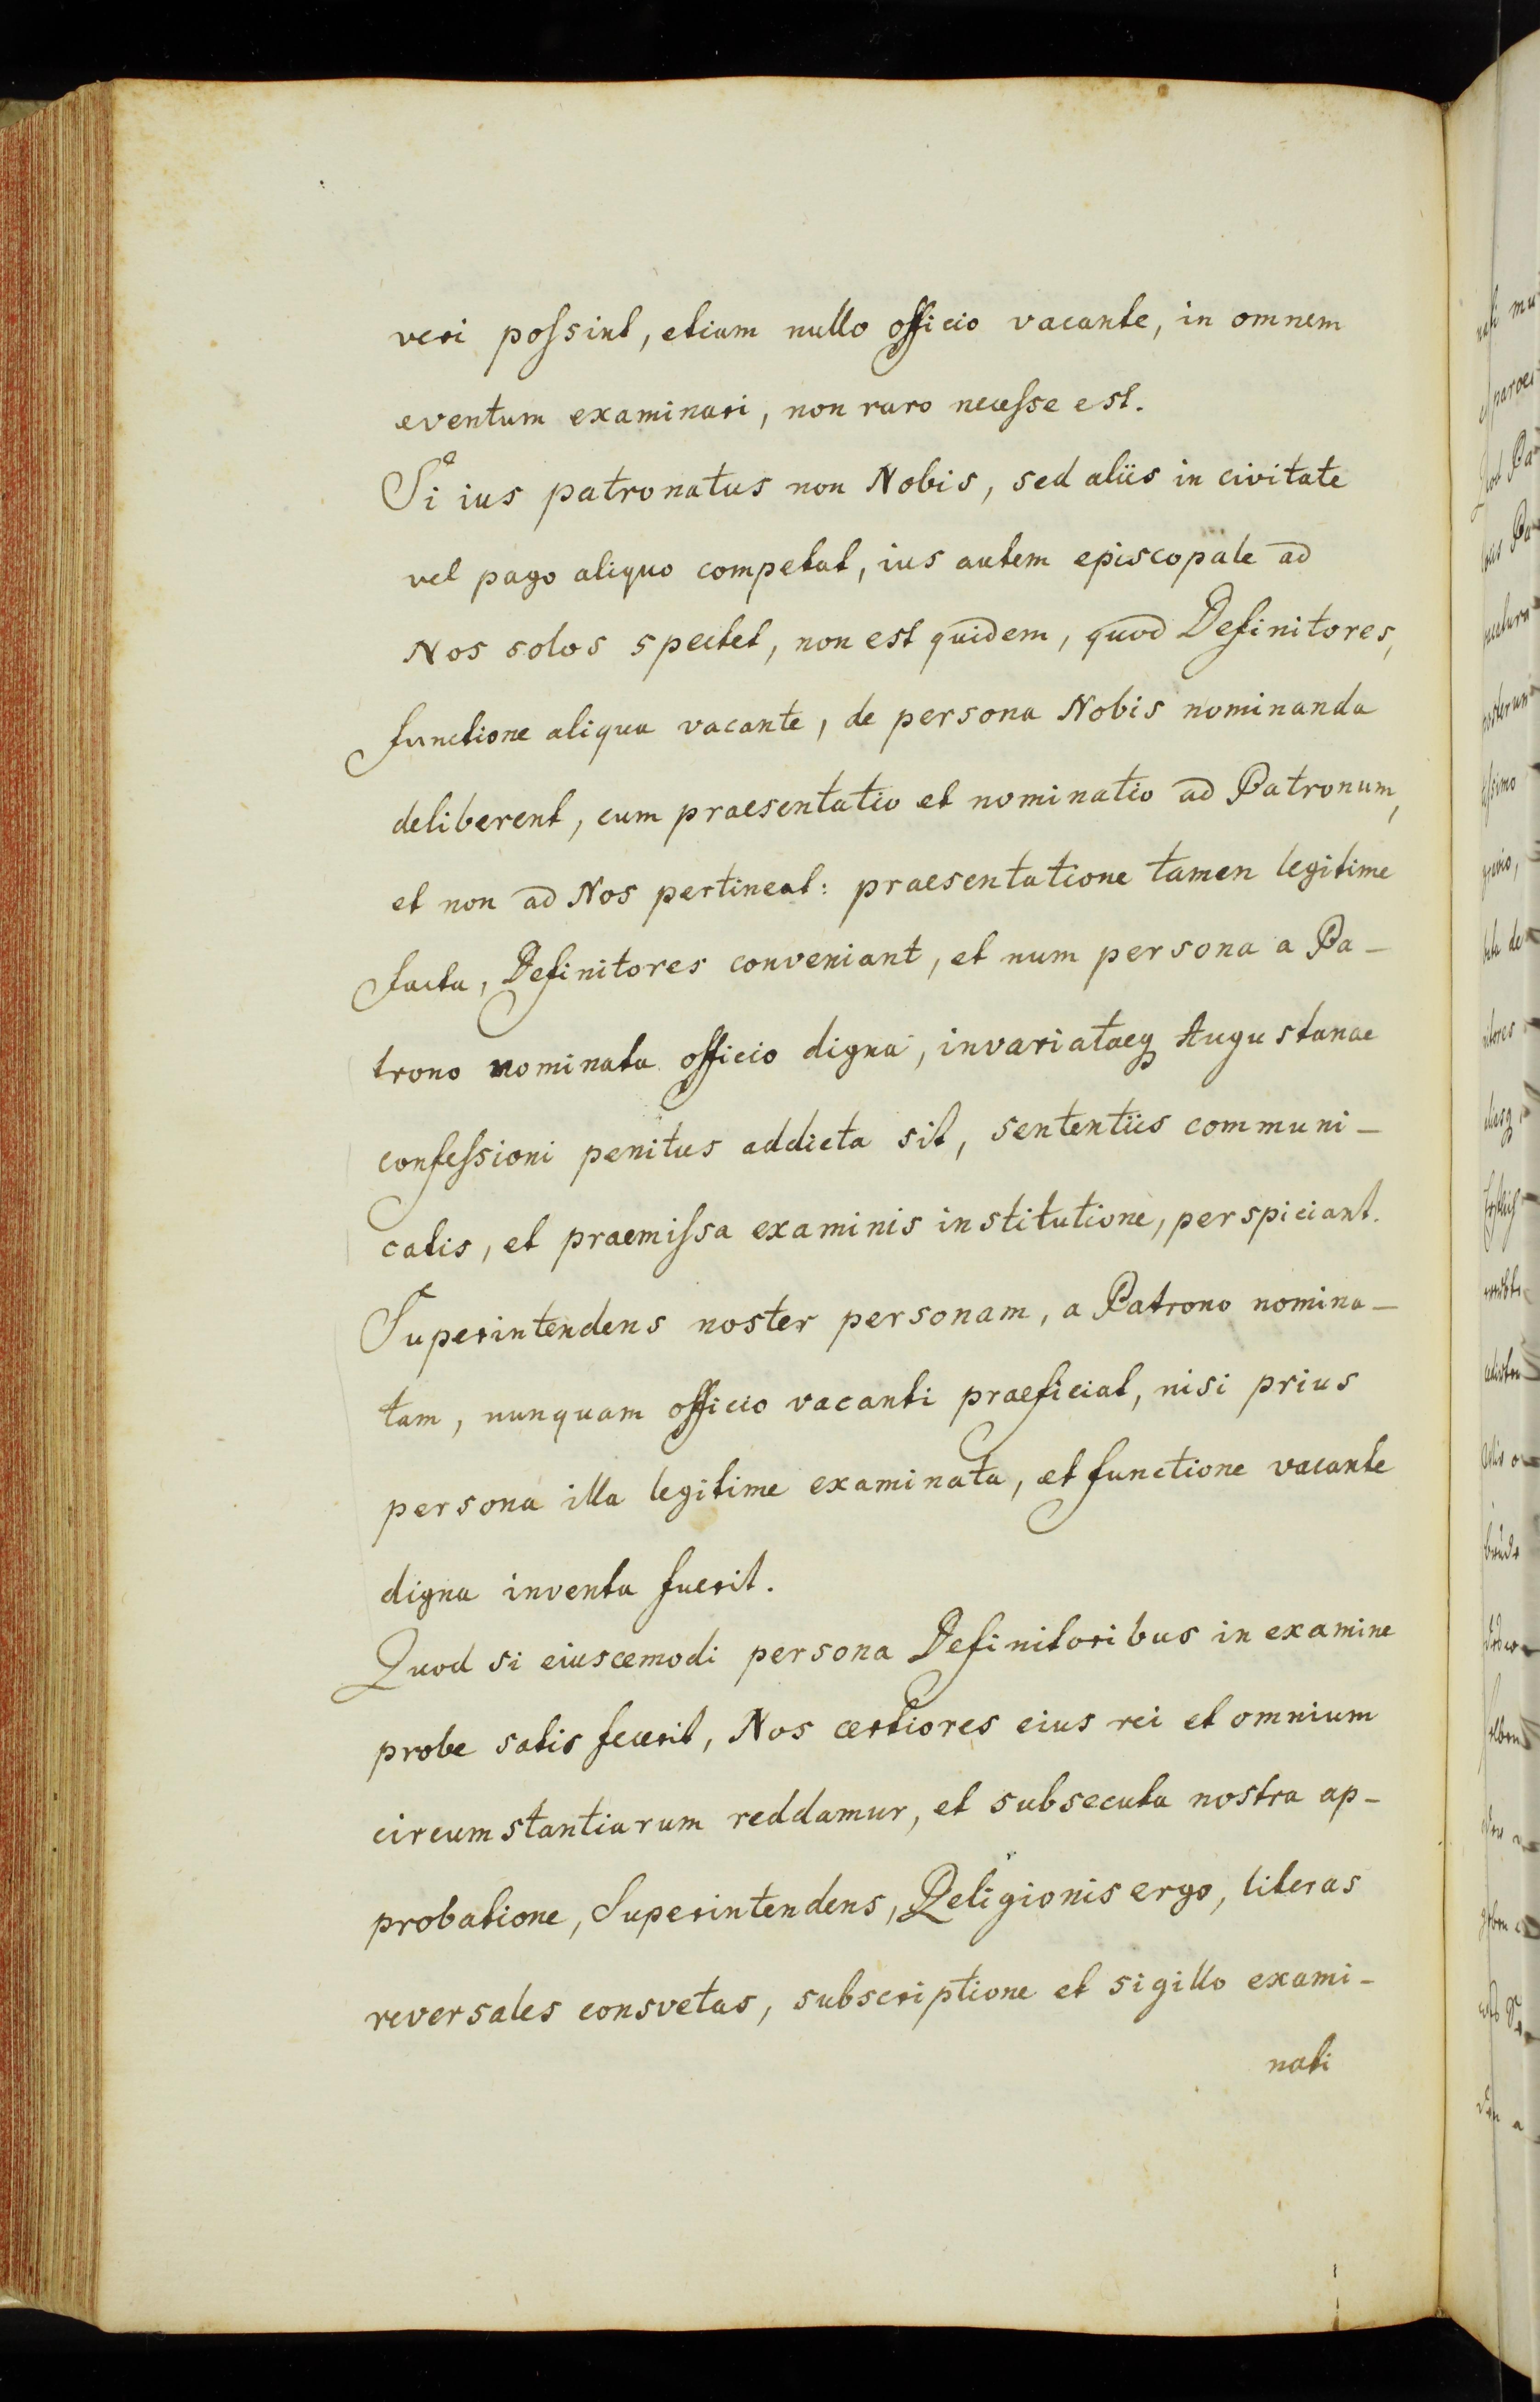 veri poſsint, etiam nullo officio vacante, in omnem
eventum examinari, non raro neceſse est.
Si ius patronatus non Nobis, sed aliis in civitate
vel pago aliquo competat, ius autem episcopale ad
Nos solos spectet, non est quidem, quod Definitores,
functione aliqua vacante, de persona Nobis nominanda
deliberent, cum praesentatio et nominatio ad Patronum,
et non ad Nos pertineat: praesentatione tamen legitime
facta, Definitores conveniant, et num persona a Pa-
trono nominata officio digna, invariataeq Augustanae
confeſsioni penitus addicta sit, sententiis communi-
catis, et praemiſsa examinis institutione, perspiciant.
Superintendens noster personam, a Patrono nomina-
tam, nunquam officio vacanti praeficiat, nisi prius
persona illa legitime examinata, et functione vacante
digna inventa fuerit.
Quod si eiuscemodi persona Definitoribus in examine
probe satis fecerit, Nos certiores eius rei et omnium
circumstantiarum reddamur, et subsecuta nostra ap-
probatione, Superintendens, Religionis ergo, literas
reversales consvetas, subscriptione et sigillo exami-
nati